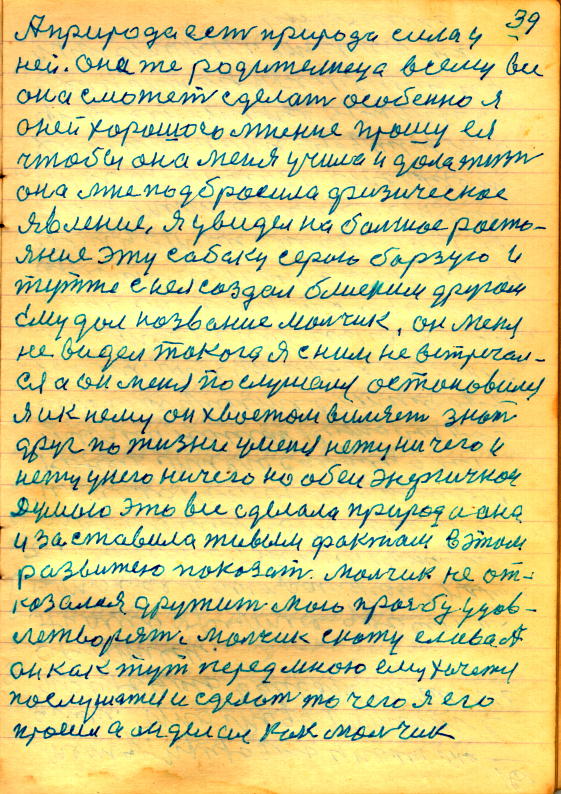 39
А природа есть природа сила у
ней. Она же родительница всему все
она сможет сделат особенно я
о ней хорошого мнение прошу ея
чтобы она меня учила и дола жизн
она мне подбросила физическое
явление, я увидел на болшое росто-
яние эту собаку серою борзую и
тутже с нея создал близким другом
Ему дол название молчик, он меня
не видел токога я с ним не встречал-
ся а он меня послушался остоновился
я и к нему он хвостом виляет знат
друг по жизни у меня нету ничего и
нету у него ничего но обеи энергичной
Думою это все сделала природа она
и заставила живым фактам в этом
развитею показат. молчик не от-
козался дружит мою прозбу удов-
летворят. молчик скожу слова А
он как тут передмною ему хочетя
послушатя и сделат то чего я его
просил а он делал как молчик